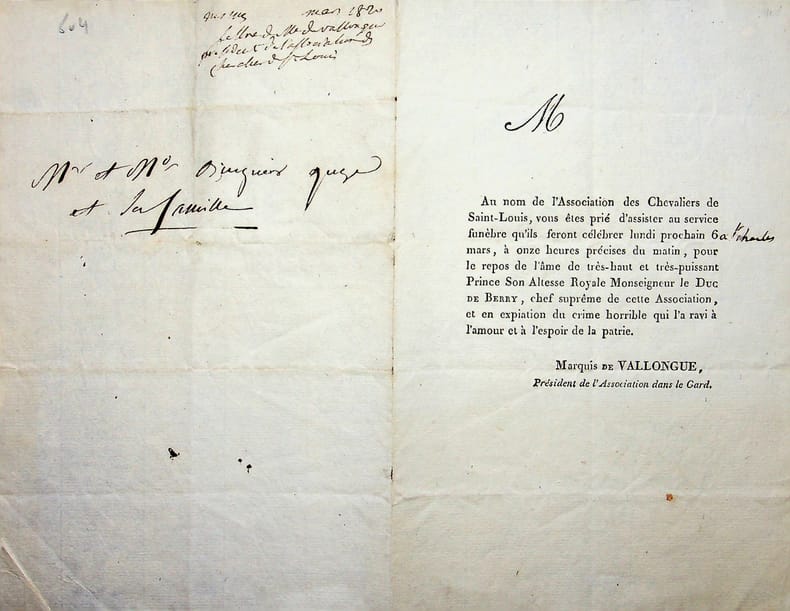 604
mars 1820
lettre de Mr de Vallongue
président de l'association des
chevaliers de St Louis
Mr et Me juge
et sa famille
M
Au nom de l'Association des Chevaliers de
Saint-Louis, vous êtes prié d'assister au service
funèbre qu'ils feront célébrer lundi prochain 6 a St charles
mars, à onze heures précises du matin, pour
le repos de l'âme de très-haut et très-puissant
Prince Son Altesse Royale Monseigneur le Duc
DE BERRY, chef suprême de cette Association,
et en expiation du crime horrible qui l'a ravi à
l'amour et à l'espoir de la patrie.
Marquis DE VALLONGUE,
Président de l'Association dans le Gard.